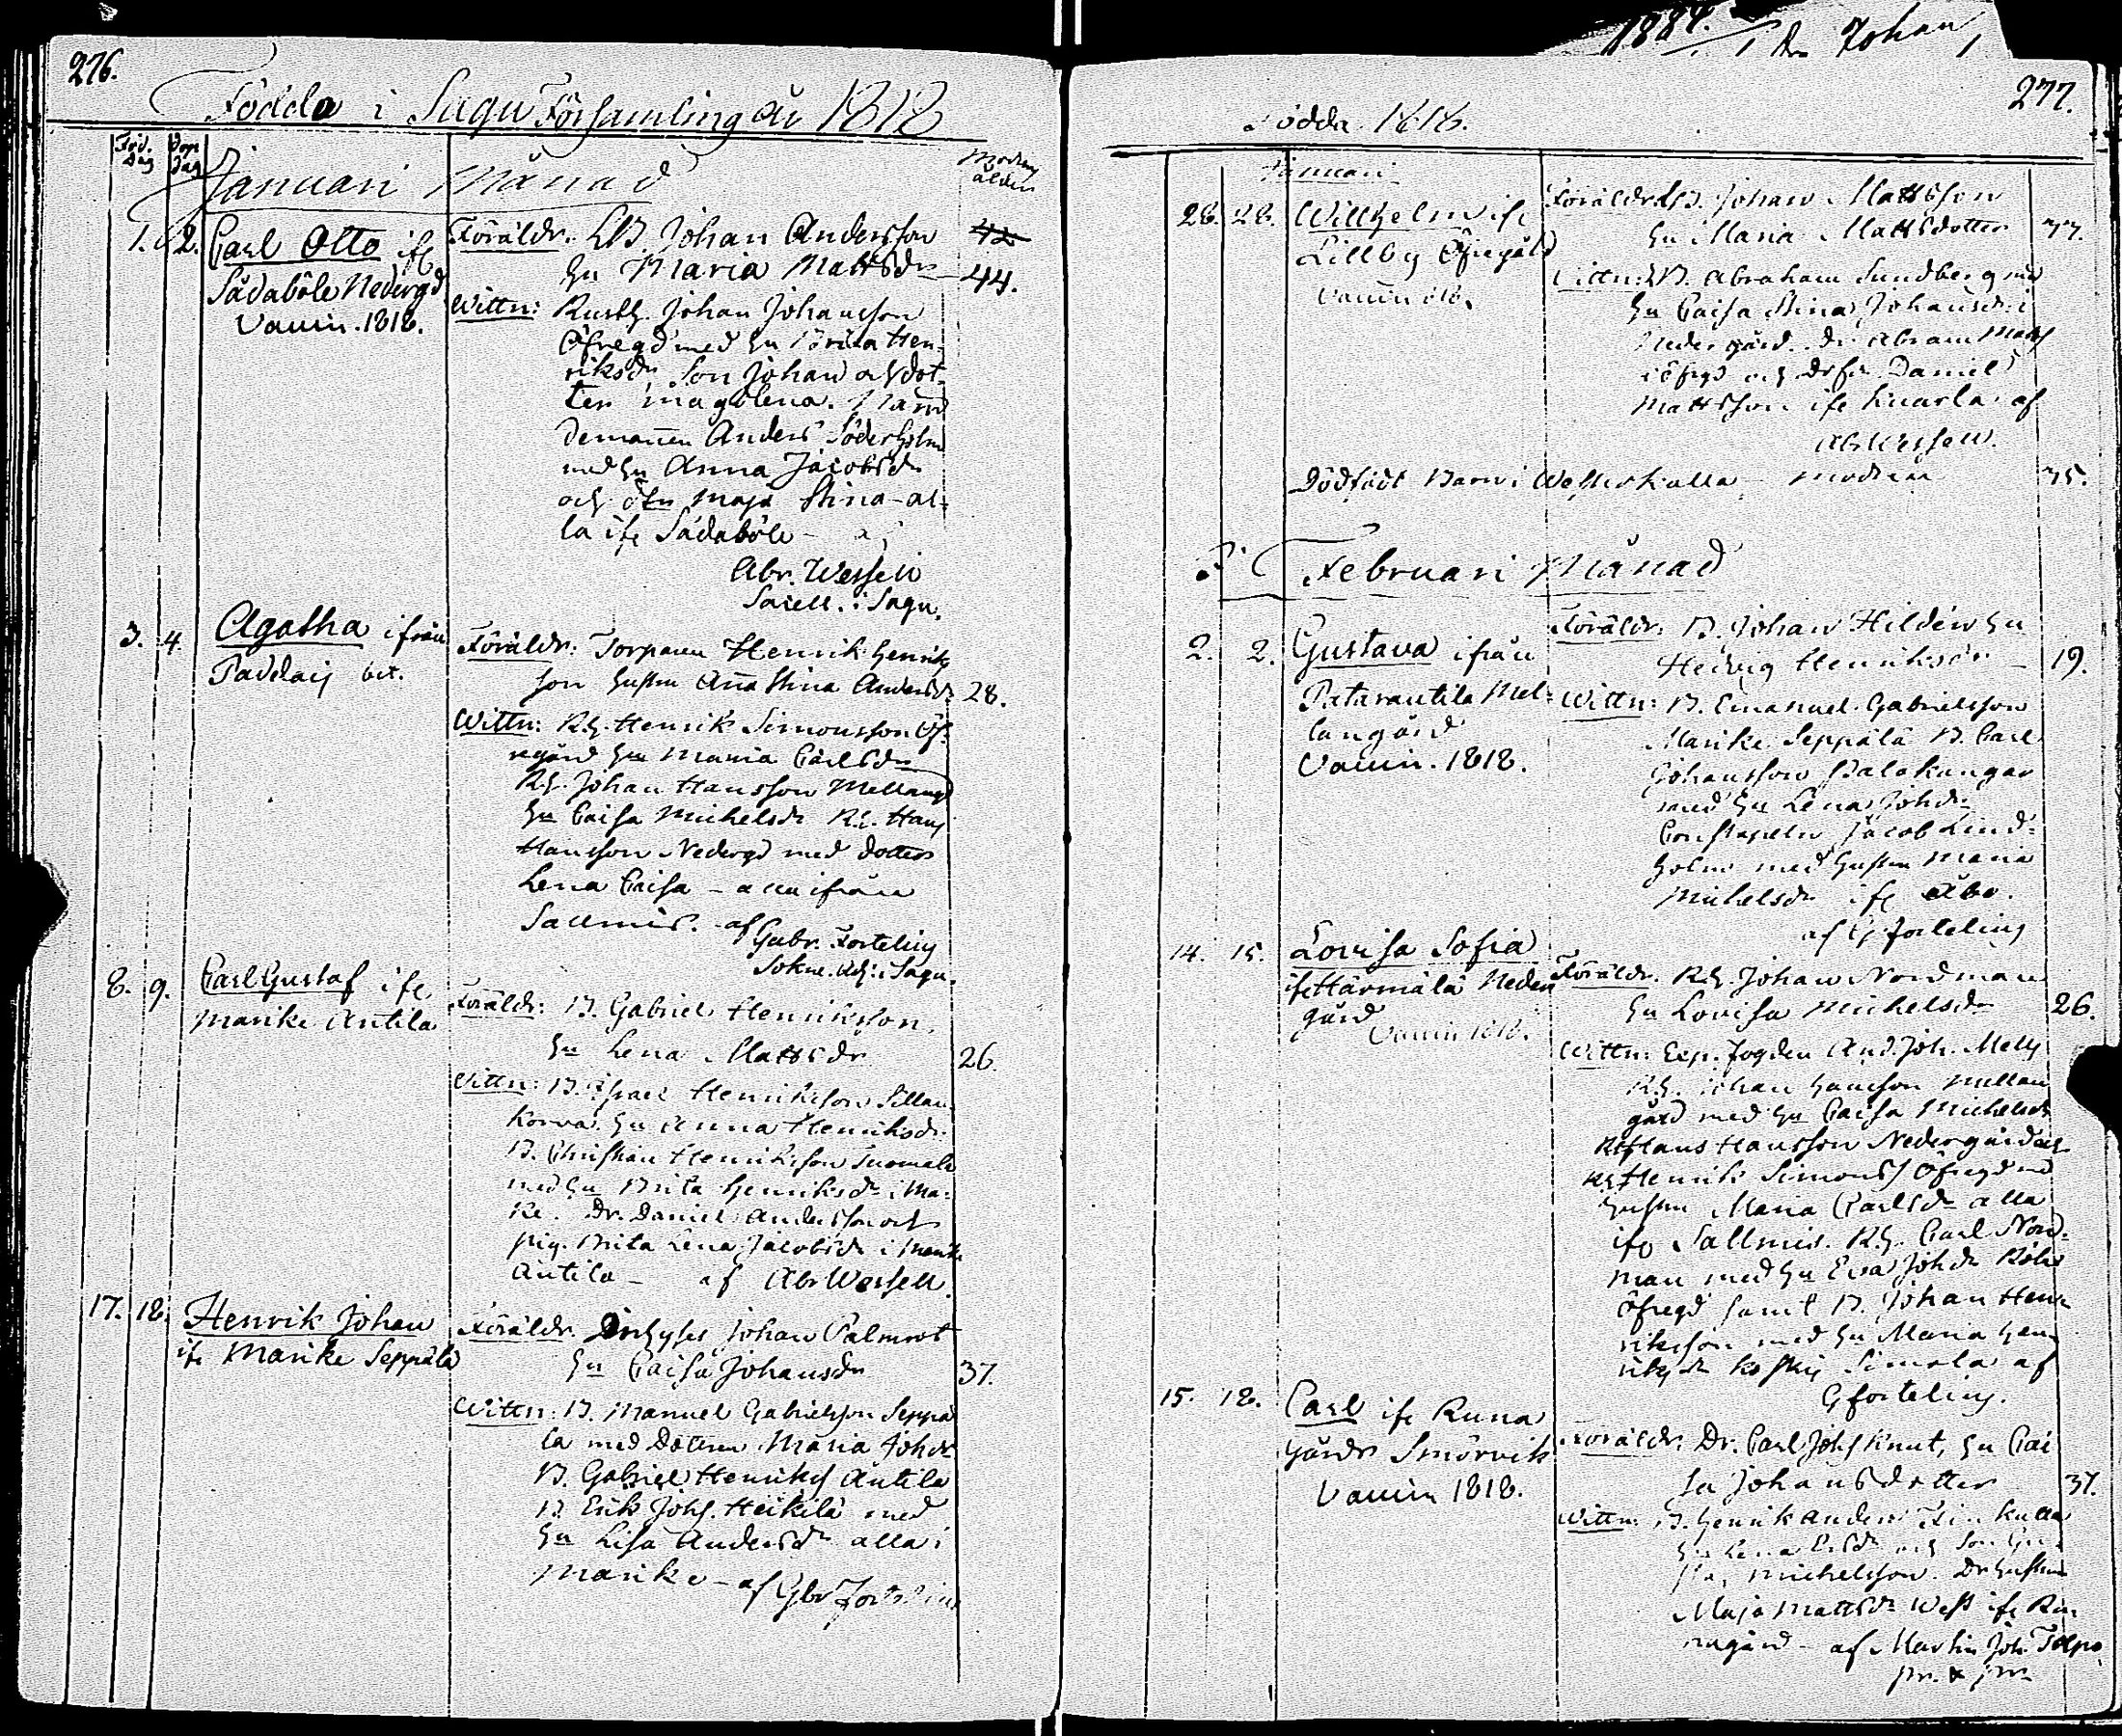 276.
Födda i Sagu Församling År 1818
Föd. Dag
Dop Dag
Januari Månad
Modrens ålder
1. 2. Carl Otto ifr
Sådaböle Nedergd
Vaccin. 1818.
Föräldr: LB. Johan Andersson
hu Maria Mattsdr
42
44.
Wittn: Rusth. Johan Johansson
Öfregd med hu Brita Hen-
riksdr Son Johan och dot-
ter Magdlena. Nämd
demannen Anders Söderholm
med hu Anna Jacobsdr
och Maja Stina - al-
la ifr Sådaböle - af
Abr. Wessell
Sacell. i Sagu.
3. 4. Agatha ifrån
Paddais
Föräldr: Torparen Henrik Henriks
son hustru Anna Stina Andersdr 28.
Wittn: Rh. Henrik Simonsson Öf-
regård hu Maria Carlsdr
Rh. Johan Hansson Mellangd
hu Caisa Michelsdr Rh. Hans
Hansson Nedergd med dotter
Lena Caisa - alla ifrån
Sallmis. af Gabr. Forteliug
Sokne. Adj: i Sagu.
8. 9. Carl Gustaf ifr
Marike Antila
Föräldr: B. Gabriel Henriksson
hu Lena Mattsdr 26.
Wittn: B. Israel Henriksson Sillan-
korva hu Anna Henriksdr
B. Christian Henriksson Tuomala
med hu Brita Henriksdr i Ma-
ke. Dr. Daniel Andersson och
pig. Brita Lena Jacobsdr i Marike
Antila - af Abr Wessell.
17. 18. Henrik Johan
ifr Marike Seppälä
Föräldr. Inhyses Johan Palmrot
hu Caisa Johansdr 37.
Wittn: B. Manuel Gabrielsson Seppä
la med Dottren Maria Johdr
B. Gabriel Henriks Antila
B. Erik Johs. Heikilä med
hu Lisa Andersdr alla i
Marike - af Gbr
1884.
Johan
277.
Födda 1818.
Januari
28. 28. Willhelm ifr
Lillby Öfregård
Vaccin 1818.
Föräldr: B. Johan Mattsson
hu Maria Mattsdotter 37.
Wittn: B. Abraham Sundberg med
hu Caisa Stina Johansdr i
Nedergård. Dr. Abram Matts
i Öfregd och Daniel
Mattsson ifr Knarla af
Ab. Wessell.
Dödfödt Barn i Westerkulla - Modren 35.
Februari Månad
2. 2. Gustava ifrån
Patarautila Mel-
langård
Vaccin. 1818.
Föräldr: B. Johan Hildén hu
Hedvig Henriksdr - 19.
Wittn: B. Emanuel Gabrielsson
Marike Seppälä B. Carl
Johansson Palakangar
med hu Lena Johdr:
Constapeln Jacob Lind-
holm med hustru Maria
Michelsdr ifr Åbo.
af G. Forteliug
14. 15. Lovisa Sofia
ifr Härmälä Neder
gård
Vaccin 1818.
Föräldr. Rh. Johan Nordman
hu Lovisa Michelsdr 26.
Wittn: Exp. Fogden And. Joh. Mell
Rh. Johan Hansson Mellan
gård med hu Caisa Michelsdr
Rh Hans Hansson Nedergård
Rh Henrik Simonss Öfregd med
hustru Maria Carlsdr alla
ifr Sallmis. Rh. Carl Nord-
man med hu Eva Johdr
Öfregd samt B. Johan Hen-
riksson med hu Maria Hen
riksdr Koskis Simola af
G forteliug.
15. 18. Carl ifr Runa
gårds Smörvik
Vaccin 1818.
Föräldr: Dr. Carl Johs Knut, hu Cai
sa Johansdotter 37.
Wittn: B. Henrik Anders Finkulla
hu Lena Ersdr och Son Gu-
Michelsson. Dr hustru
Maja Mattsdr West ifr Ru-
nagård - af Martin Joh. Tolpo